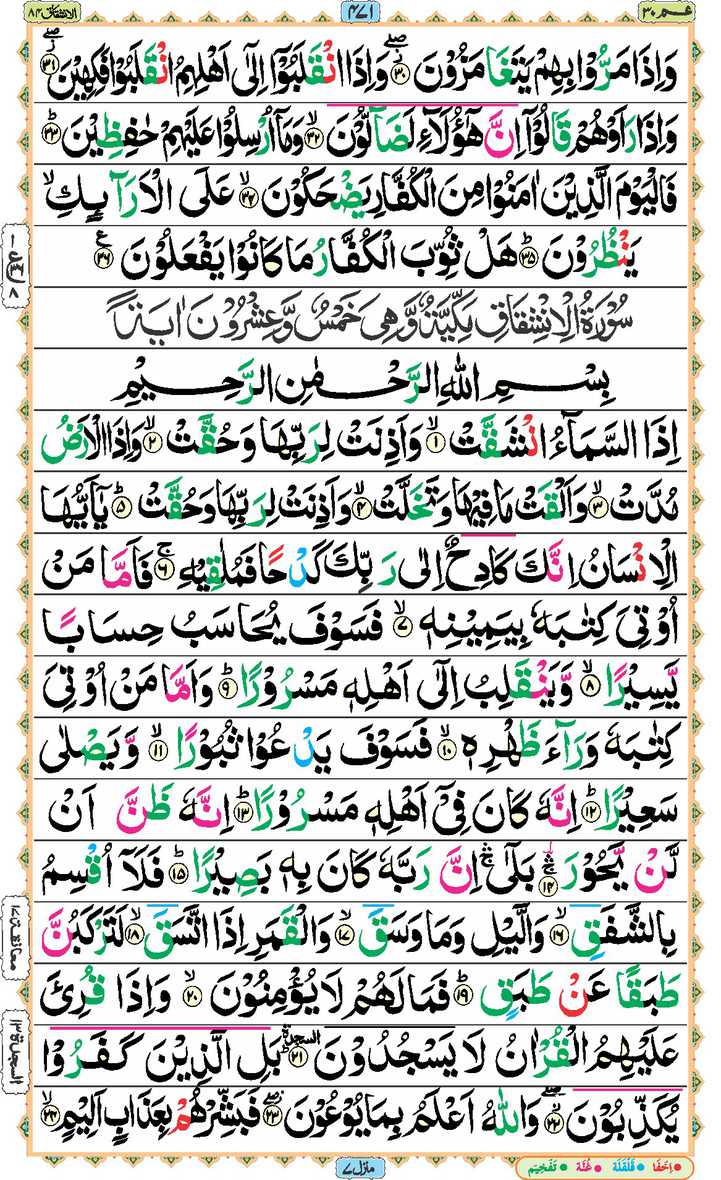 عـم ٣٠
٤٧١
الانشقاق ٨٤
وَاِذَا مَرُّوْا بِهِمْ يَتَغَامَزُوْنَ ۝٣٠ وَاِذَا انْقَلَبُوْۤا اِلٰۤى اَهْلِهِمُ انْقَلَبُوْا فَكِهِيْنَ ۝٣١
وَاِذَا رَاَوْهُمْ قَالُوْۤا اِنَّ هٰۤؤُلَآءِ لَضَآلُّوْنَ ۝٣٢ وَمَاۤ اُرْسِلُوْا عَلَيْهِمْ حٰفِظِيْنَ ۝٣٣
فَالْيَوْمَ الَّذِيْنَ اٰمَنُوْا مِنَ الْكُفَّارِ يَضْحَكُوْنَ ۝٣٤ عَلَى الْاَرَآئِكِ
يَنْظُرُوْنَ ۝٣٥ هَلْ ثُوِّبَ الْكُفَّارُ مَا كَانُوْا يَفْعَلُوْنَ ۝٣٦
سُوْرَةُ الْاِنْشِقَاقِ مَكِّيَّةٌ وَّهِىَ خَمْسٌ وَّعِشْرُوْنَ اٰيَةً
بِسْمِ اللّٰهِ الرَّحْمٰنِ الرَّحِيْمِ
اِذَا السَّمَآءُ انْشَقَّتْ ۝١ وَاَذِنَتْ لِرَبِّهَا وَحُقَّتْ ۝٢ وَاِذَا الْاَرْضُ
مُدَّتْ ۝٣ وَاَلْقَتْ مَا فِيْهَا وَتَخَلَّتْ ۝٤ وَاَذِنَتْ لِرَبِّهَا وَحُقَّتْ ۝٥ يٰۤاَيُّهَا
الْاِنْسَانُ اِنَّكَ كَادِحٌ اِلٰى رَبِّكَ كَدْحًا فَمُلٰقِيْهِ ۝٦ فَاَمَّا مَنْ
اُوْتِىَ كِتٰبَهٗ بِيَمِيْنِهٖ ۝٧ فَسَوْفَ يُحَاسَبُ حِسَابًا
يَّسِيْرًا ۝٨ وَّيَنْقَلِبُ اِلٰٓى اَهْلِهٖ مَسْرُوْرًا ۝٩ وَاَمَّا مَنْ اُوْتِىَ
كِتٰبَهٗ وَرَآءَ ظَهْرِهٖ ۝١٠ فَسَوْفَ يَدْعُوْا ثُبُوْرًا ۝١١ وَّيَصْلٰى
سَعِيْرًا ۝١٢ اِنَّهٗ كَانَ فِىْۤ اَهْلِهٖ مَسْرُوْرًا ۝١٣ اِنَّهٗ ظَنَّ اَنْ
لَّنْ يَّحُوْرَ ۝١٤ بَلٰٓى ۛ اِنَّ رَبَّهٗ كَانَ بِهٖ بَصِيْرًا ۝١٥ فَلَاۤ اُقْسِمُ
بِالشَّفَقِ ۝١٦ وَالَّيْلِ وَمَا وَسَقَ ۝١٧ وَالْقَمَرِ اِذَا اتَّسَقَ ۝١٨ لَتَرْكَبُنَّ
طَبَقًا عَنْ طَبَقٍ ۝١٩ فَمَا لَهُمْ لَا يُؤْمِنُوْنَ ۝٢٠ وَاِذَا قُرِئَ
عَلَيْهِمُ الْقُرْاٰنُ لَا يَسْجُدُوْنَ السجدة ۝٢١ بَلِ الَّذِيْنَ كَفَرُوْا
يُكَذِّبُوْنَ ۝٢٢ وَاللّٰهُ اَعْلَمُ بِمَا يُوْعُوْنَ ۝٢٣ فَبَشِّرْهُمْ بِعَذَابٍ اَلِيْمٍ ۝٢٤
السجدة ١٣
منزل ٧
اِخْفَا
قَلْقَلَة
غُنَّة
تَفْخِيْم